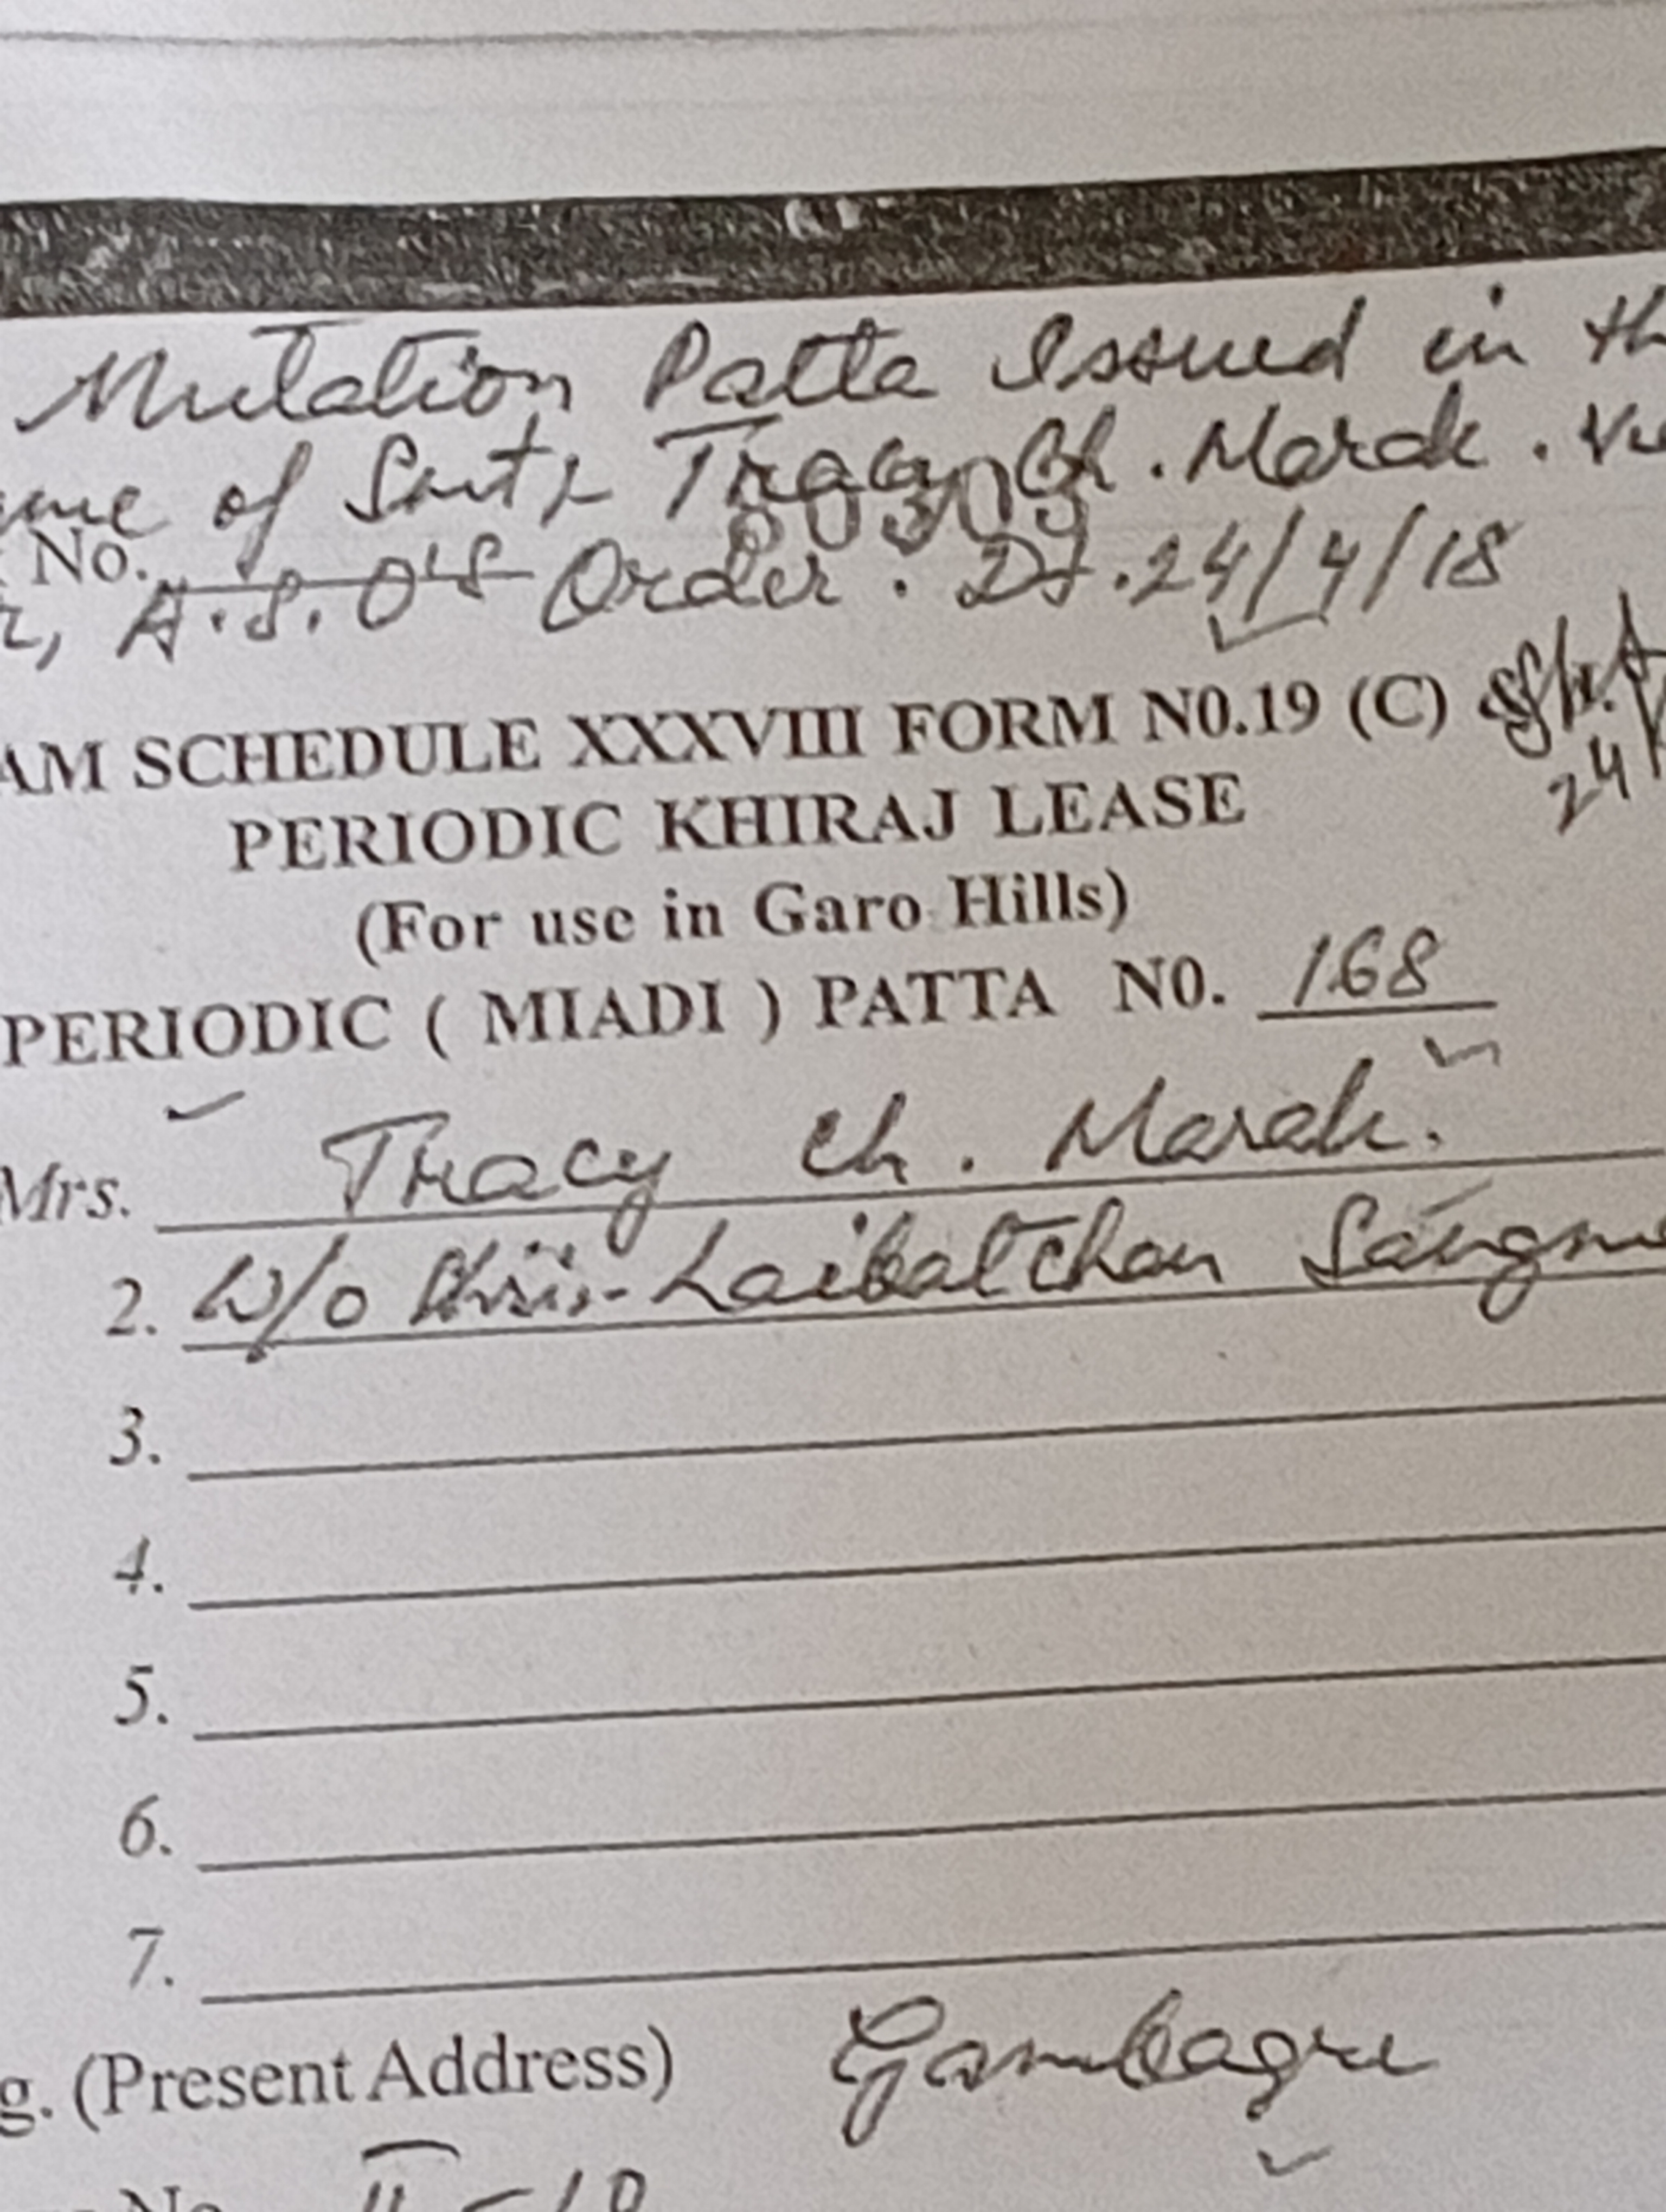 Mutation Patta Issued in th
ame of Smt. Tracy Ch. Marak. Vi
No. 80309
r, A.S.O'S Order. Dt. 24/4/18
AM SCHEDULE XXXVIII FORM N0.19 (C)
24
PERIODIC KHIRAJ LEASE
(For use in Garo Hills)
PERIODIC ( MIADI ) PATTA N0. 168
Mrs. Tracy Ch. Marak.
2. W/o Shri. Laibatchan Sangma
3.
4.
5.
6.
7.
g. (Present Address) Gambagre
No. II - 10